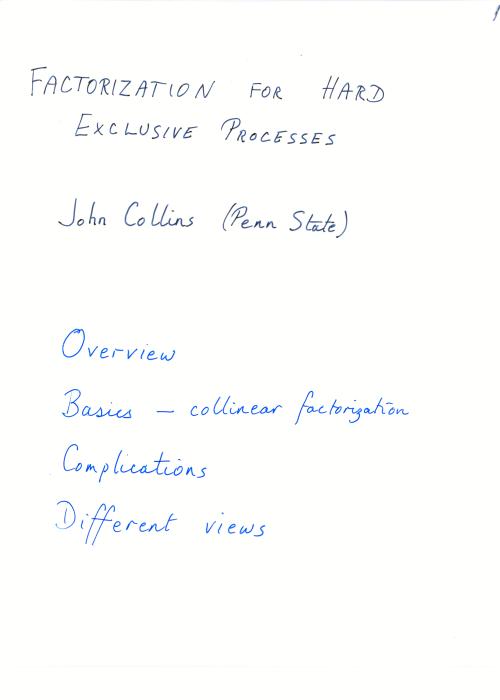 FACTORIZATION FOR HARD
EXCLUSIVE PROCESSES
John Collins (Penn State)
Overview
Basics — collinear factorization
Complications
Different views